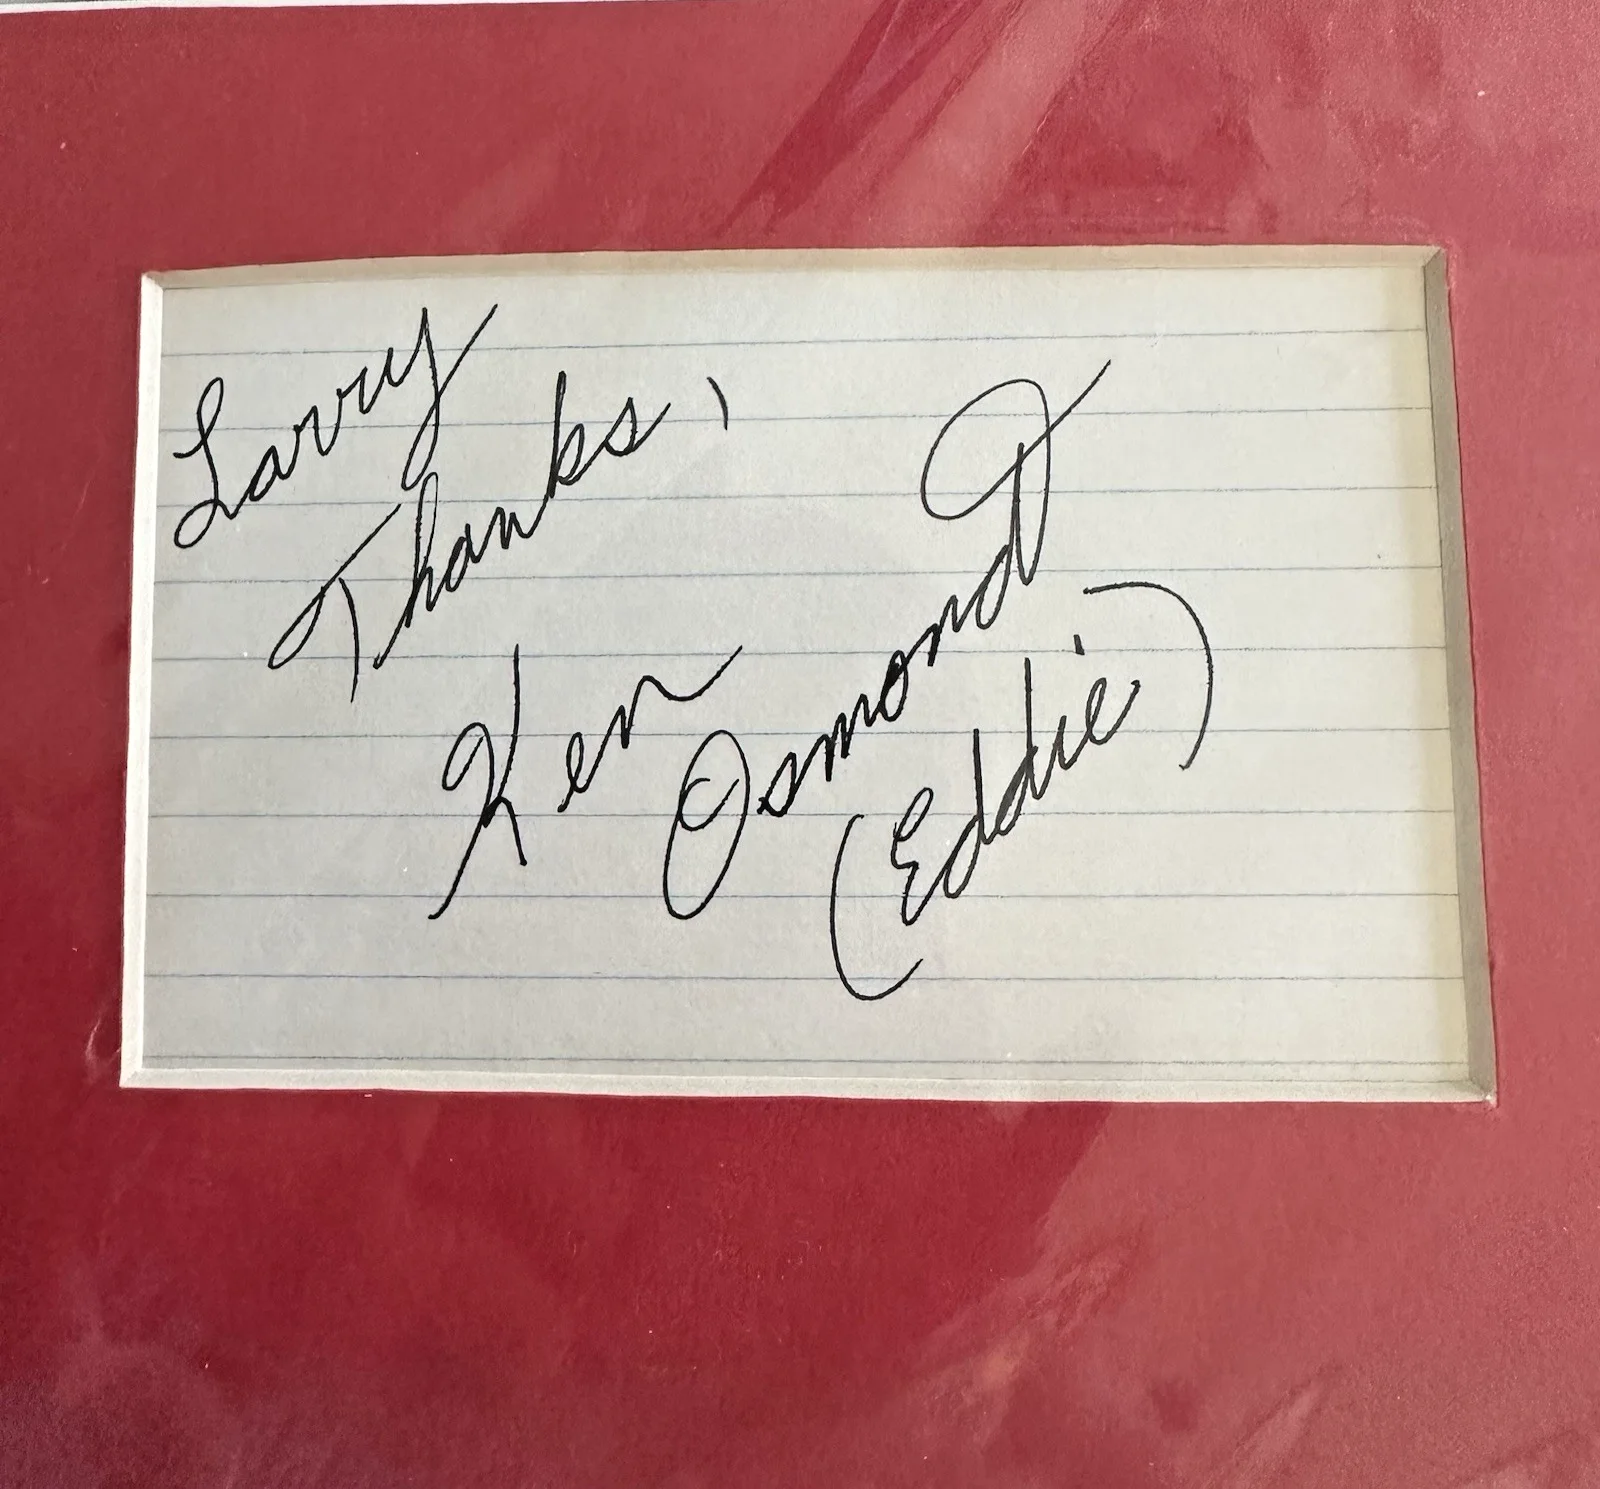 Larry
Thanks,
Ken
Osmond
(Eddie)